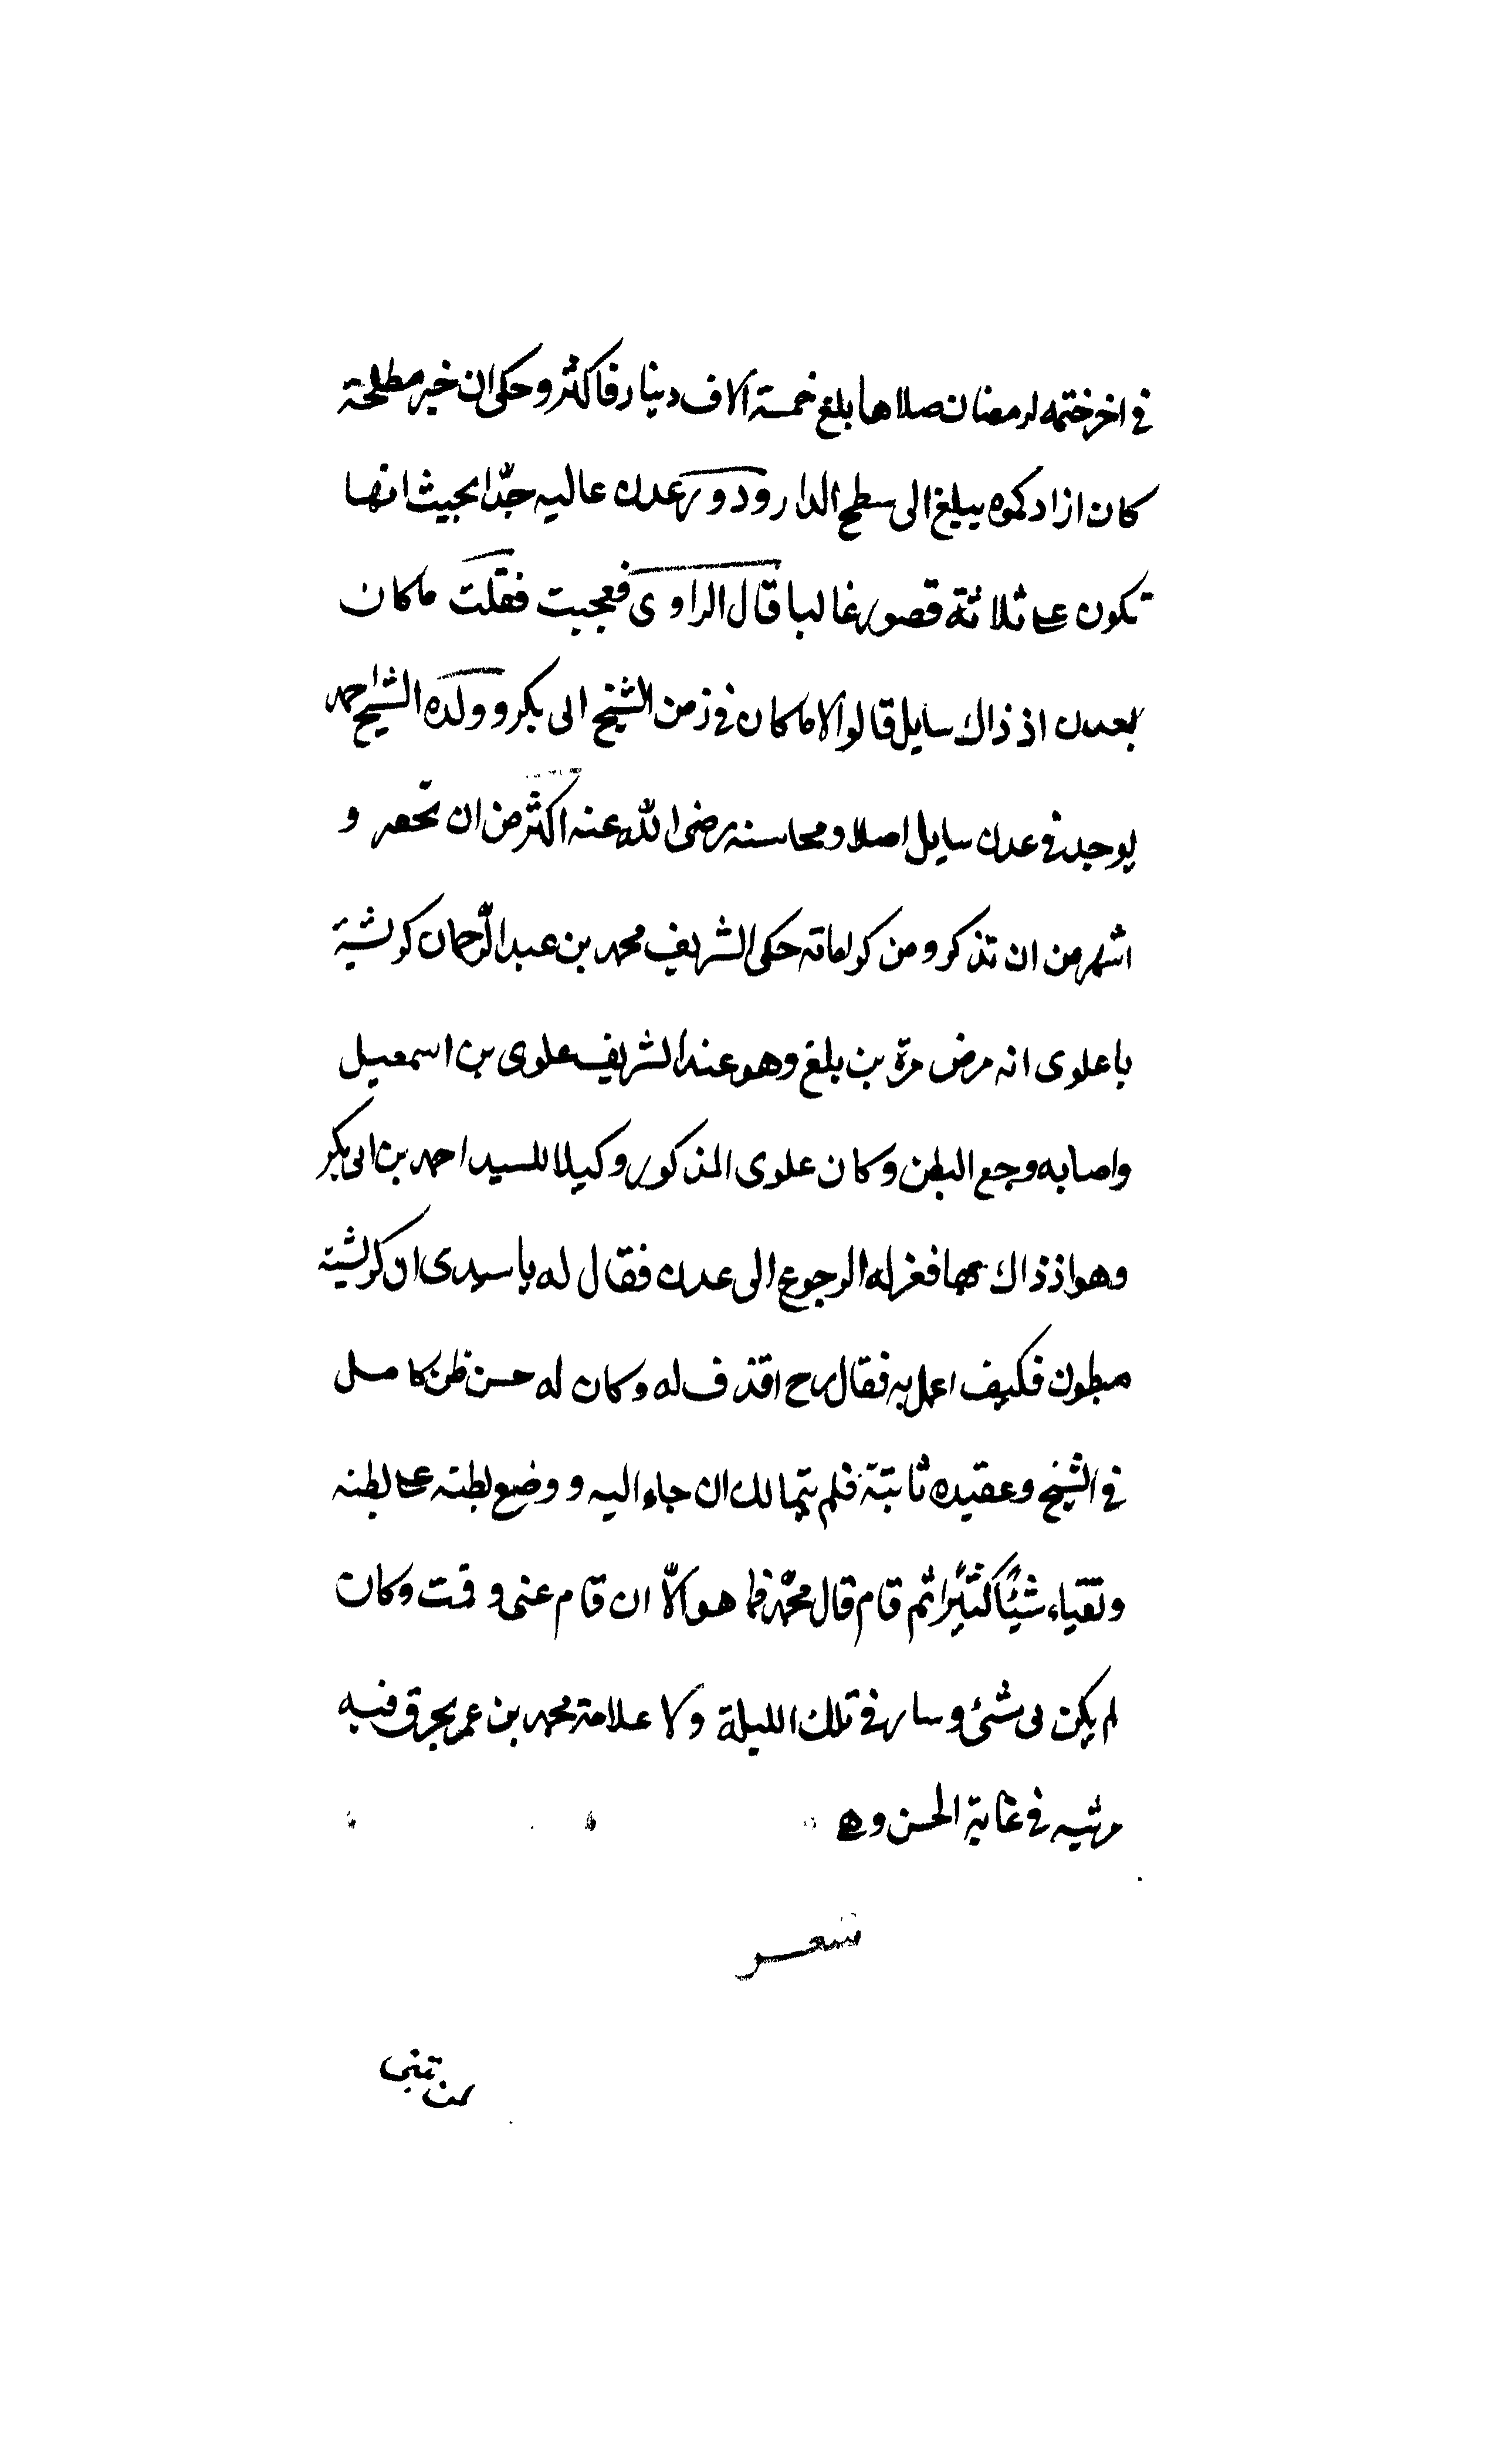 في اخر ختمه لرمضان صلاها بلغ خمسة الاف دينار فاكثر وحكى ان خبر مطلحة
كان ازا دكموه يبلغ الى سطح الدار ودور عدن عاليه جدّا بحيث انها
تكون على ثلاثة قصور غالبا قال الراوى فعجبت فقلت ماكان
بعدن اذ ذاك سايل قالوا لا ماكان في زمن الشيخ ابى بكر وولده الشيخ احمد
يوجد في عدن سايل اصلا ومحاسنه رضى الله عنه اكثر من ان تحصر و
اشهر من ان تذكر ومن كراماته حكى الشريف محمد بن عبد الرّحمان كريشة
باعلوى انه مرض مرة بن بلغ وهو عند الشريف علوى بن اسمعيل
واصابه وجع البطن وكان علوى المذكور وكيلا للسيد احمد بن ابى بكر
وهو اذ ذاك بها فغزله الرجوع الى عدن فقال له ياسيدى ان كريشة
مبطون فكيف اعمل به فقال رح اقذف له وكان له حسن ظن كامل
في الشيخ وعقيده ثابتة فلم يتمالك ان جاء اليه ووضع بطنه على بطنه
وتقياء شيًا كثيرًا ثم قام قال محمّد فما هو الّا ان قام عنى وقت وكان
لم يكن بى شئ وسار في تلك الليلة ولا علامة محمد بن عمر بحرق فيه
مرثيه في غاية الحسن وه
شعر
لمن تبنى